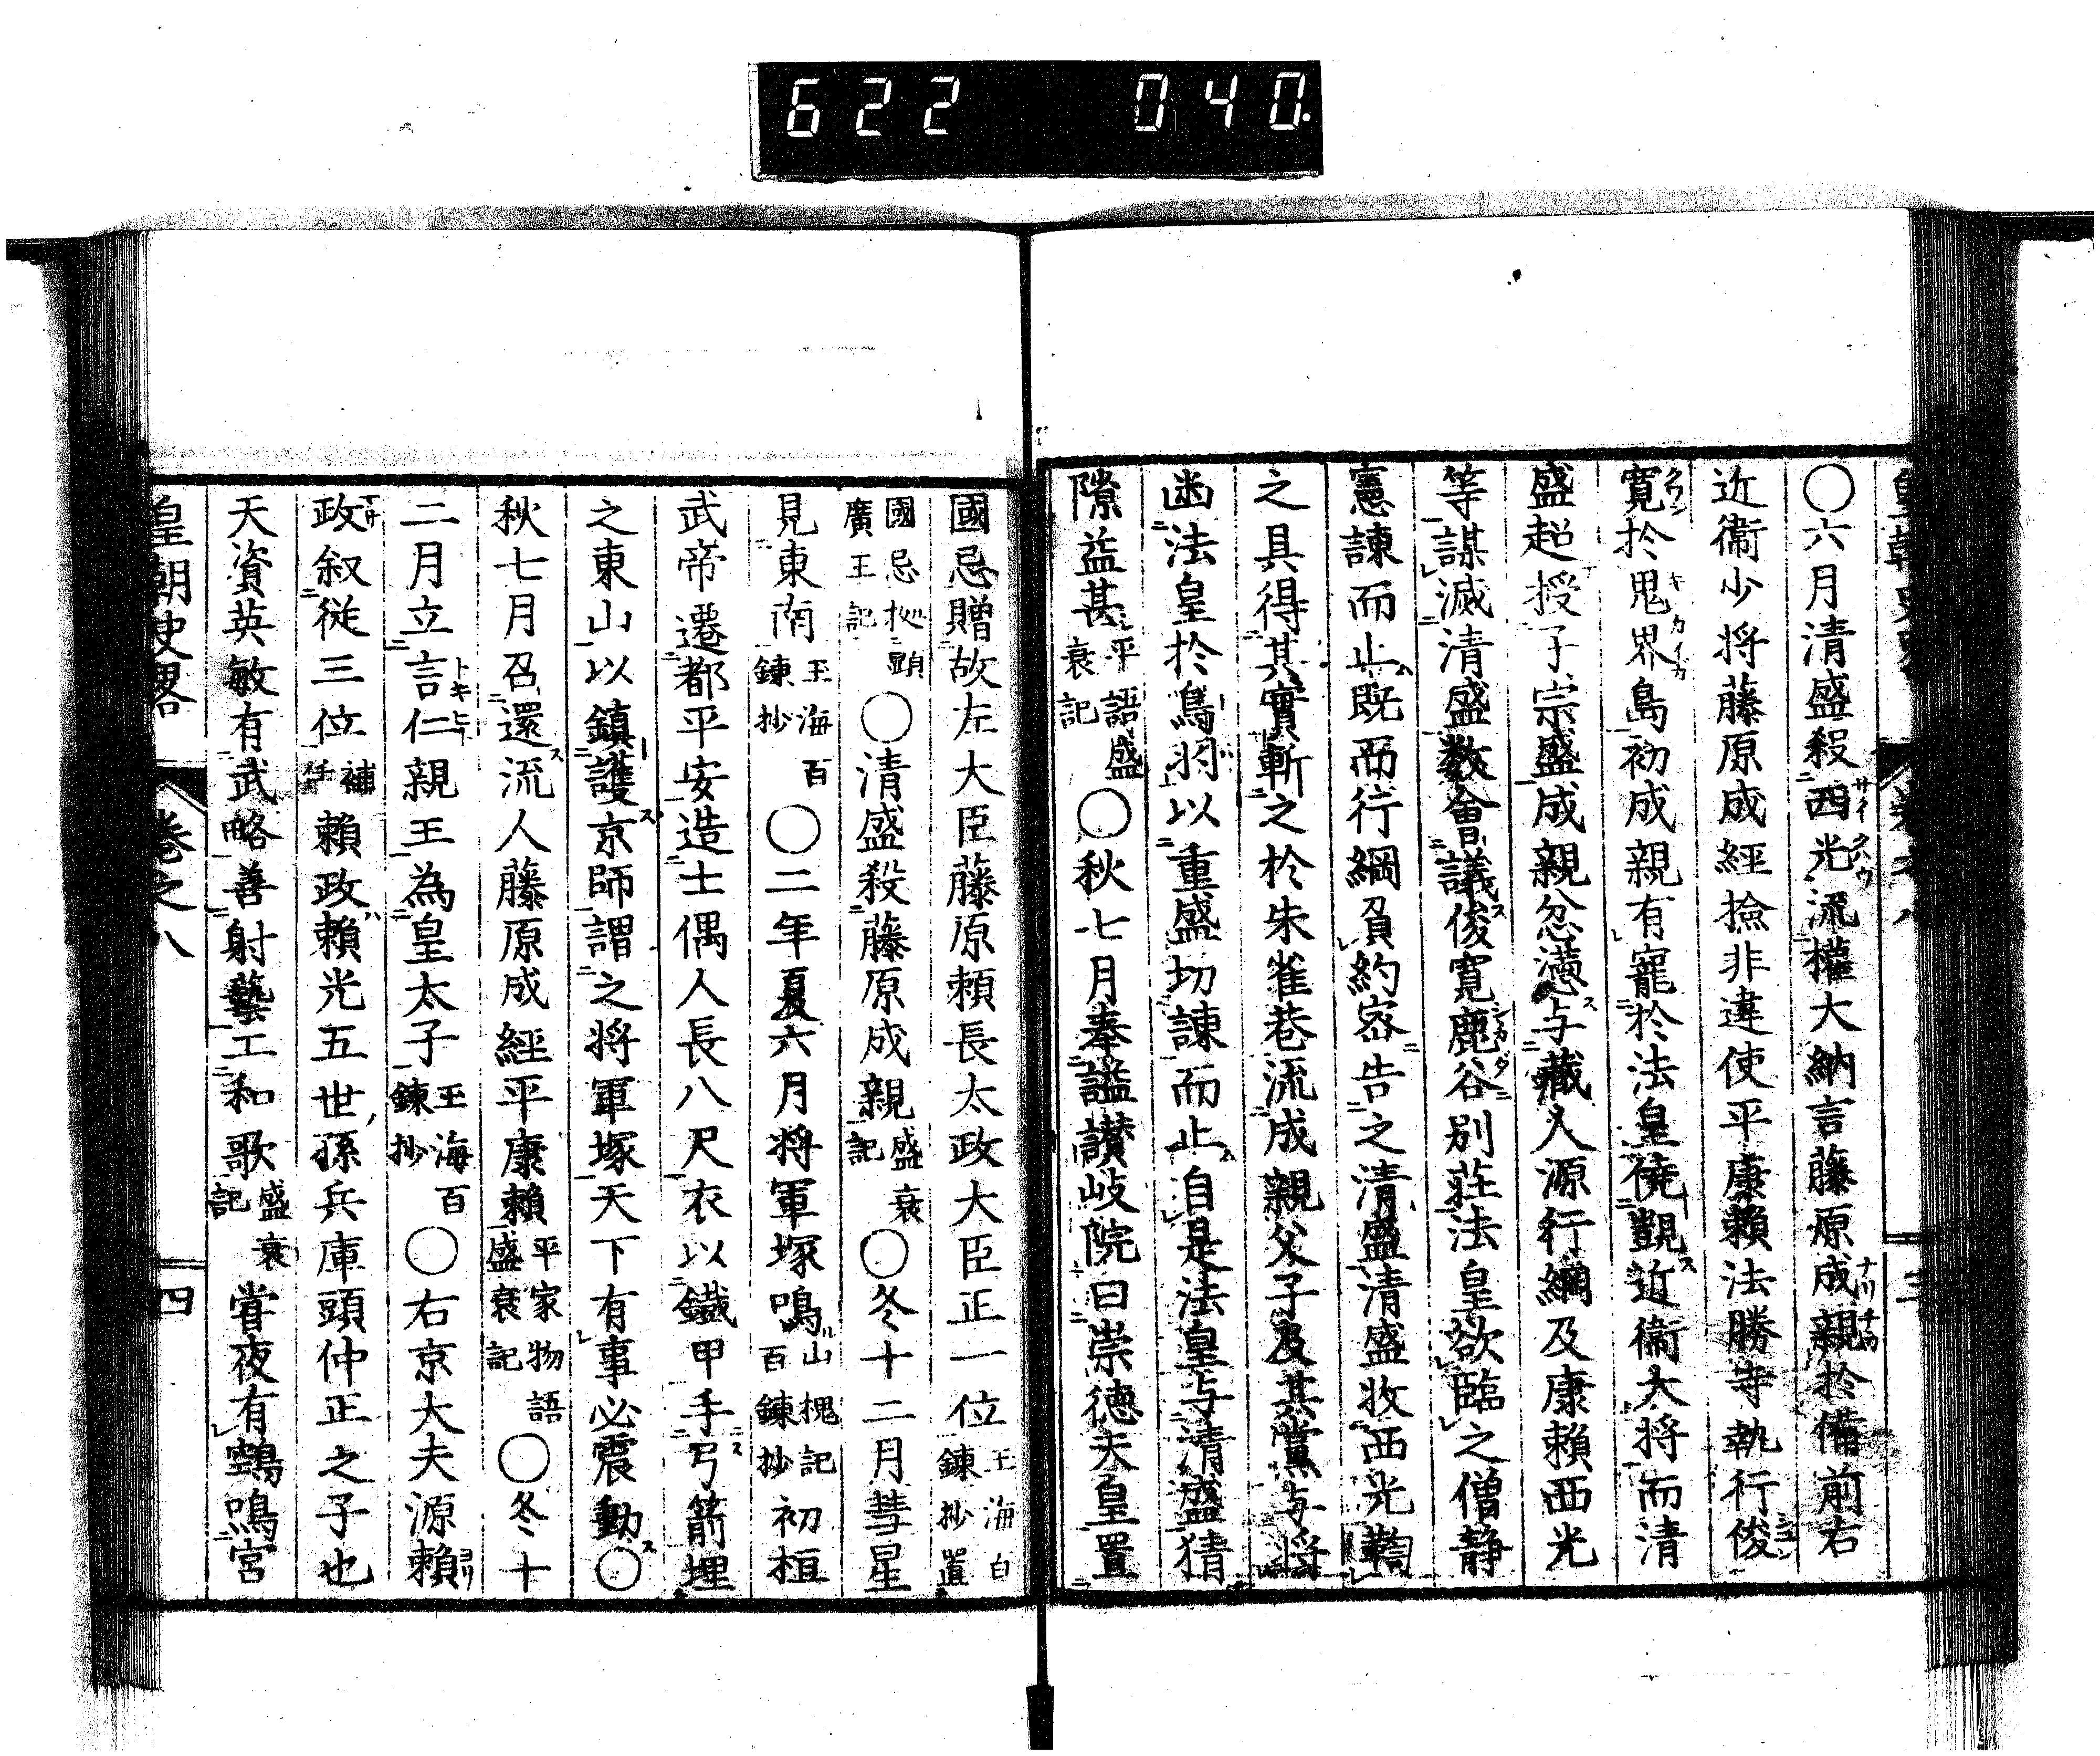 622 040
○六月清盛殺西光流權大納言藤原成親於備前右
近衞少将藤原成經撿非違使平康賴法勝寺執行俊
寛於鬼界島初成親有寵於法皇僥覬近衞大将而清
盛超授子宗盛成親忿懣与藏人源行綱及康賴西光
等謀滅清盛数會議俊寛鹿谷別莊法皇欲臨之僧静
憲諫而止既而行綱負約密告之清盛清盛收西光鞫
之具得其實斬之於朱雀巷流成親父子及其黨与将
凾法皇於鳥羽以重盛切諫而止自是法皇与清盛猜
隙益甚平語盛衰記○秋七月奉謚讃岐院曰崇德天皇置
國忌贈故左大臣藤原賴長太政大臣正一位玉海百鍊抄置
國忌㧞顕廣王記○清盛殺藤原成親盛衰記○冬十二月彗星
見東南玉海百鍊抄○二年夏六月将軍塚鳴山槐記百鍊抄初桓
武帝遷都平安造土偶人長八尺衣以鐵甲手弓箭埋
之東山以鎮護京師謂之将軍塚天下有事必震動○
秋七月召還流人藤原成經平康賴平家物語盛衰記○冬十
二月立言仁親王為皇太子玉海百鍊抄○右京大夫源賴
政叙従三位補任賴政賴光五世孫兵庫頭仲正之子也
天資英敏有武略善射藝工和歌盛衰記甞夜有鵼鳴宮
皇朝史畧 卷之八 四